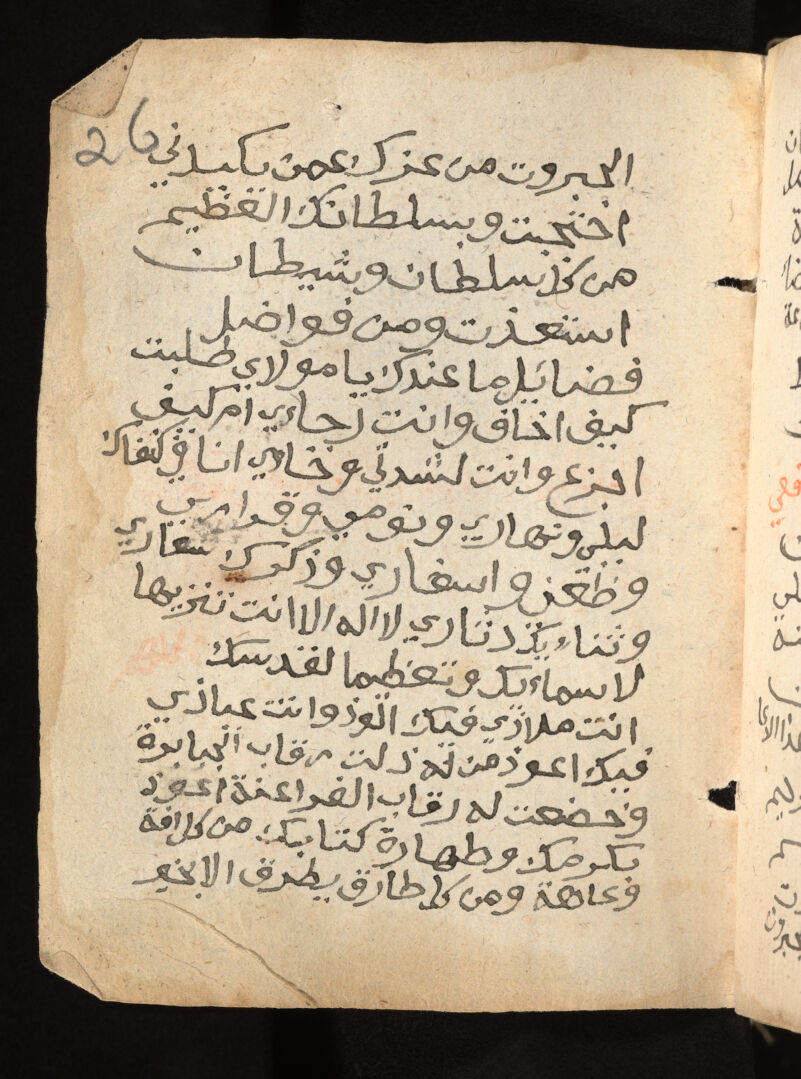 26
الجبروت من عزك عمن يكيدني
احتجبت وبسلطانك العظيم
من كل سلطان وشيطان
استعذت ومن فواضل
فضائل ما عندك يا مولاي طلبت
كيف اخاف وانت رجاءي ام كيف
اجزع وانت لشدتي ورخاءي انا في كنفك
ليلي ونهاري ونومي وقراري
وظعني واسفاري وذكرك شعاري
وثناءيك دثاري لا اله الا انت تنزيها
لاسماءيك وتعظيما لقدسك
انت ملاذي فبك الوذ وانت عياذي
فبك اعوذ من له ذلت رقاب الجبابرة
وخضعت له رقاب الفراعنة اعوذ
بكرمك وطهارة كتابك من كل افة
وعاهة ومن كل طارق يطرق الا بخير